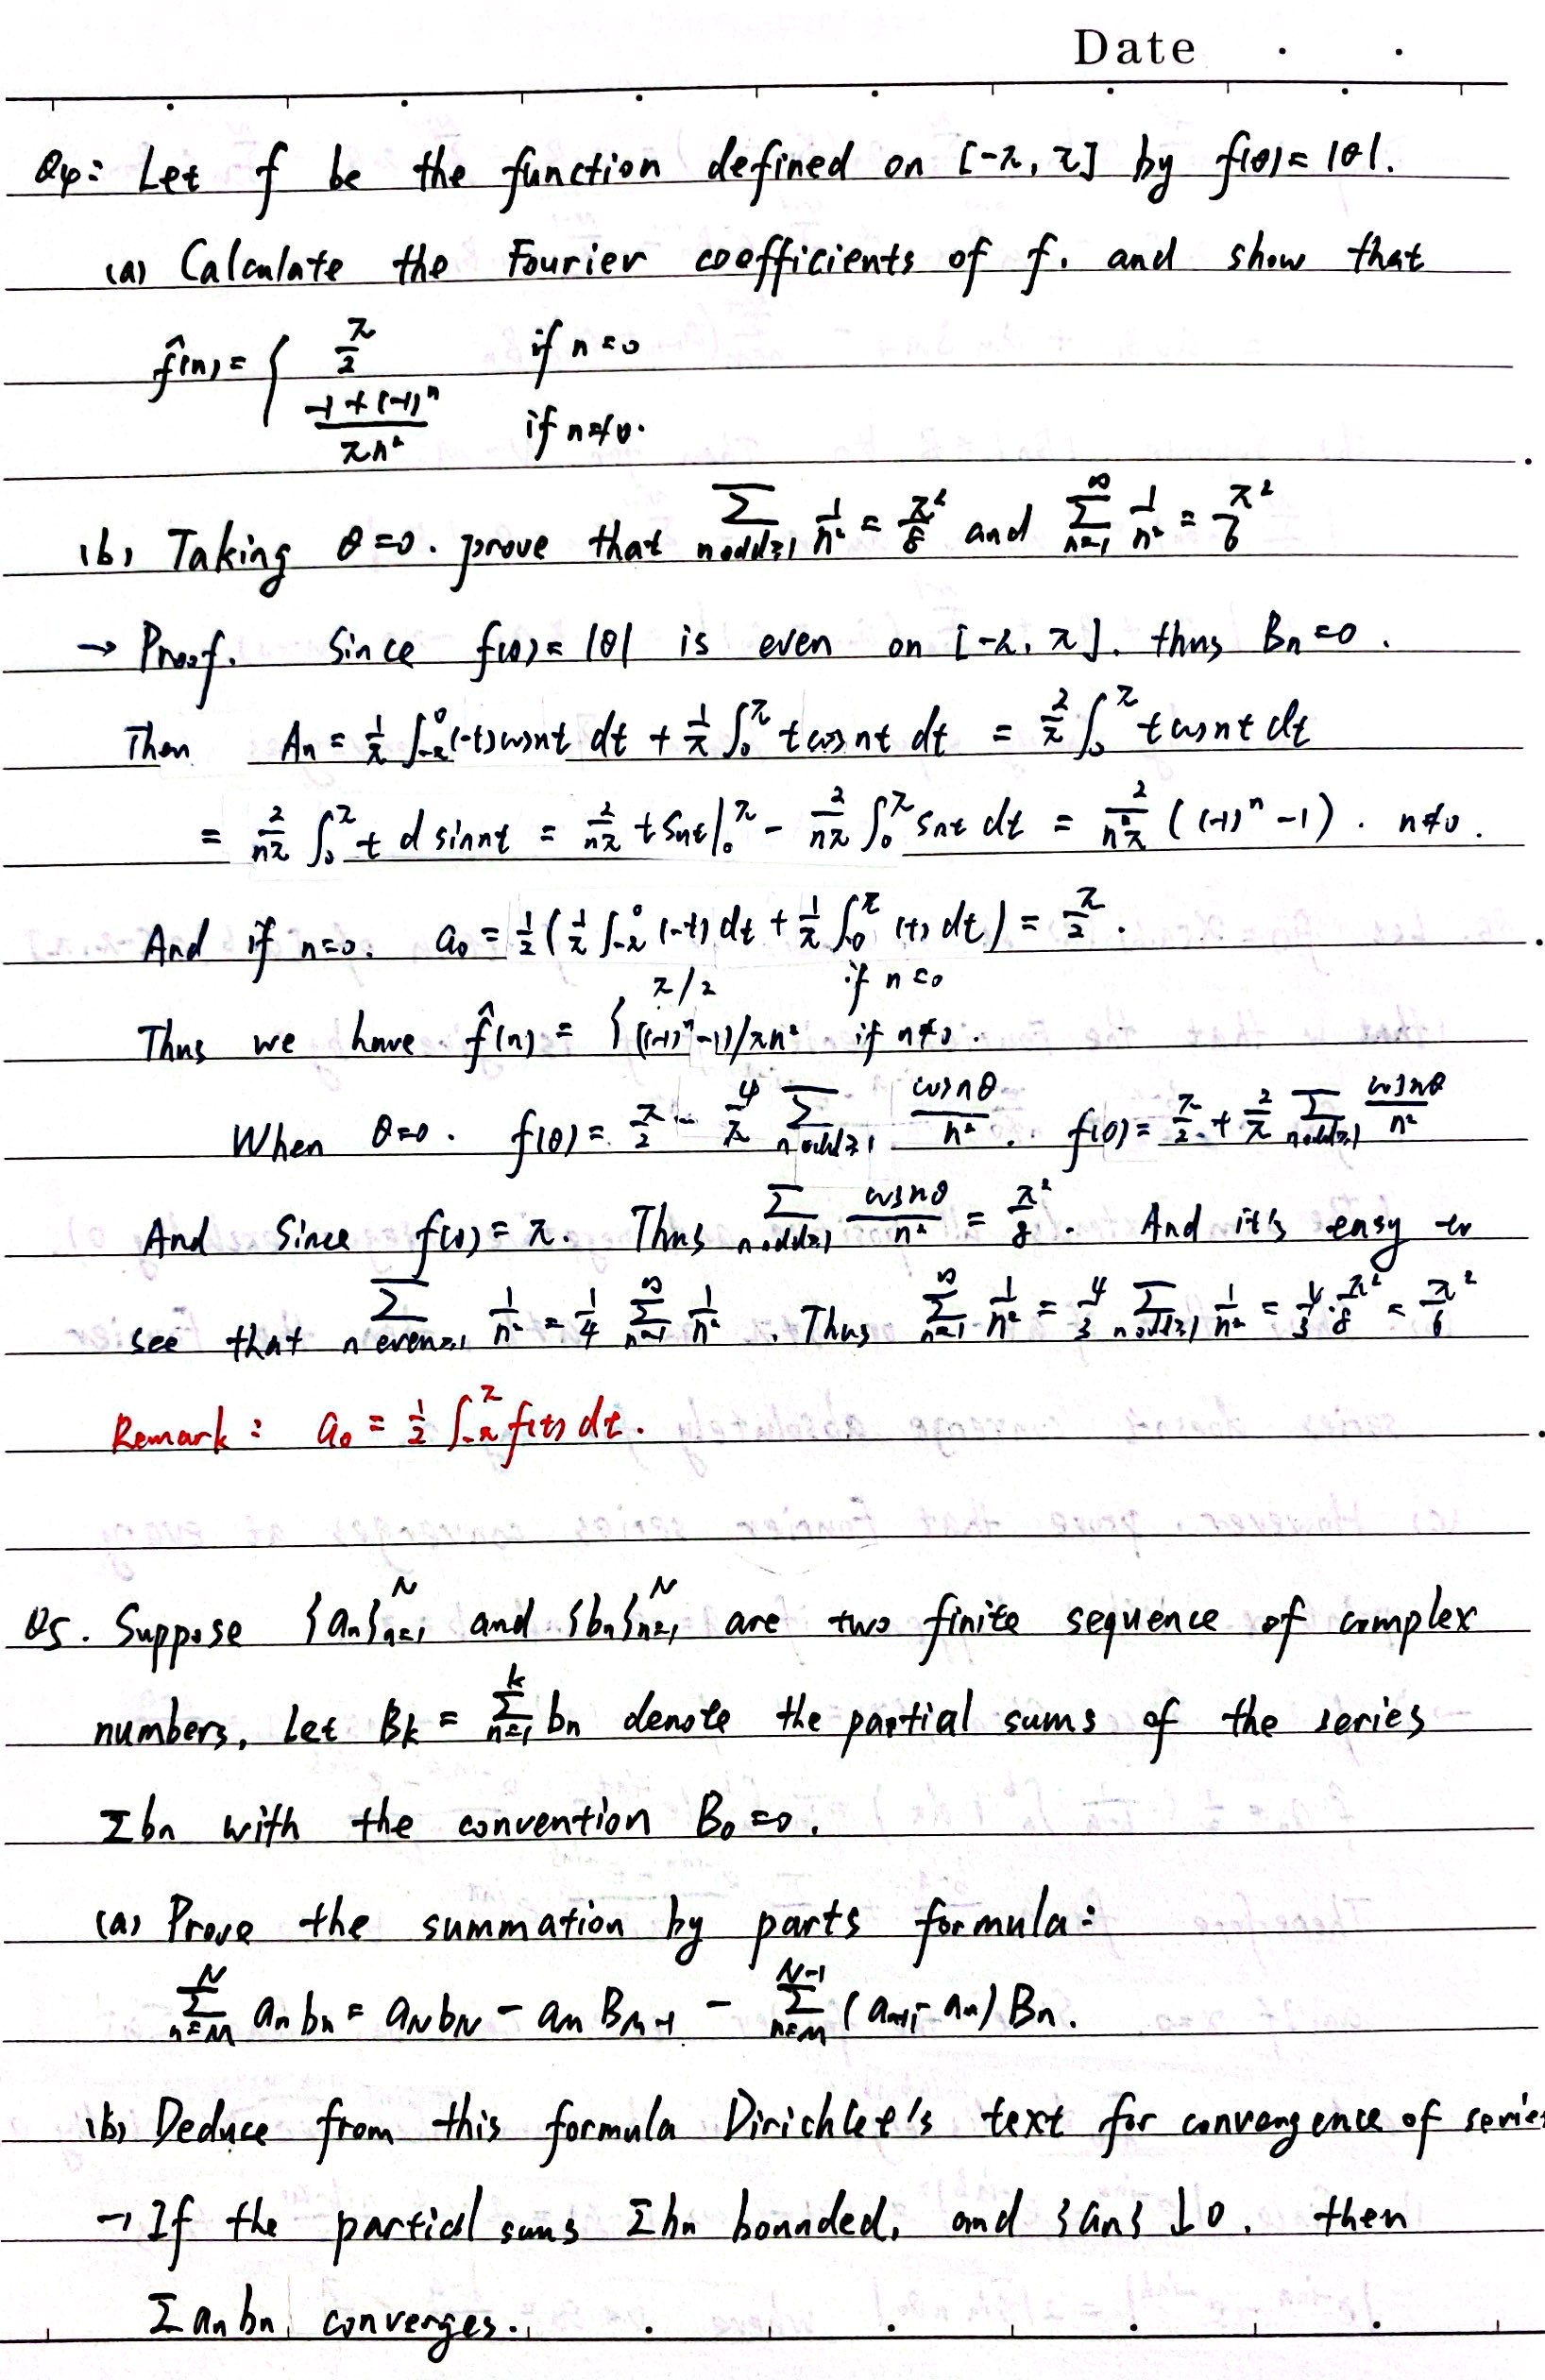 Date . .
Q4: Let f be the function defined on [-π, π] by f(θ) = |θ|.
(a) Calculate the Fourier coefficients of f, and show that
f̂(n) = { π/2 if n=0
(-1+(-1)^n)/(πn²) if n≠0.
(b) Taking θ=0. prove that Σ_{n odd≥1} 1/n² = π²/8 and Σ_{n=1}^∞ 1/n² = π²/6
→ Proof. Since f(θ) = |θ| is even on [-π, π]. thus Bn=0.
Then An = 1/π ∫_{-π}^0 (-t)cosnt dt + 1/π ∫_0^π t cosnt dt = 2/π ∫_0^π t cosnt dt
= 2/(nπ) ∫_0^π t d sinnt = 2/(nπ) t Snt|_0^π - 2/(nπ) ∫_0^π Snt dt = 2/(n²π) ((-1)^n - 1). n≠0.
And if n=0. a₀ = 1/2 (1/π ∫_{-π}^0 (-t) dt + 1/π ∫_0^π (t) dt) = π/2.
Thus we have f̂(n) = { π/2 if n=0
((-1)^n-1)/πn² if n≠0.
When θ=0. f(θ) = π/2 - 4/π Σ_{n odd≥1} cosnθ/n². f(0) = π/2 + 2/π Σ_{n odd≥1} cosnθ/n²
And Since f(0) = π. Thus Σ_{n odd≥1} cosnθ/n² = π²/8. And it's easy to
see that Σ_{n even≥1} 1/n² = 1/4 Σ_{n=1}^∞ 1/n². Thus Σ_{n=1}^∞ 1/n² = 4/3 Σ_{n odd≥1} 1/n² = 4/3 · π²/8 = π²/6
Remark: a₀ = 1/2 ∫_{-π}^π f(t) dt.
Q5. Suppose {an}_{n=1}^N and {bn}_{n=1}^N are two finite sequence of complex
numbers, Let Bk = Σ_{n=1}^k bn denote the partial sums of the series
Σbn with the convention B₀=0.
(a) Prove the summation by parts formula:
Σ_{n=M}^N an bn = aN bN - aM B_{M-1} - Σ_{n=M}^{N-1} (a_{n+1} - an) Bn.
(b) Deduce from this formula Dirichlet's text for convergence of series
→ If the partial sums Σbn bounded, and {an} ↓ 0. then
Σ an bn converges.